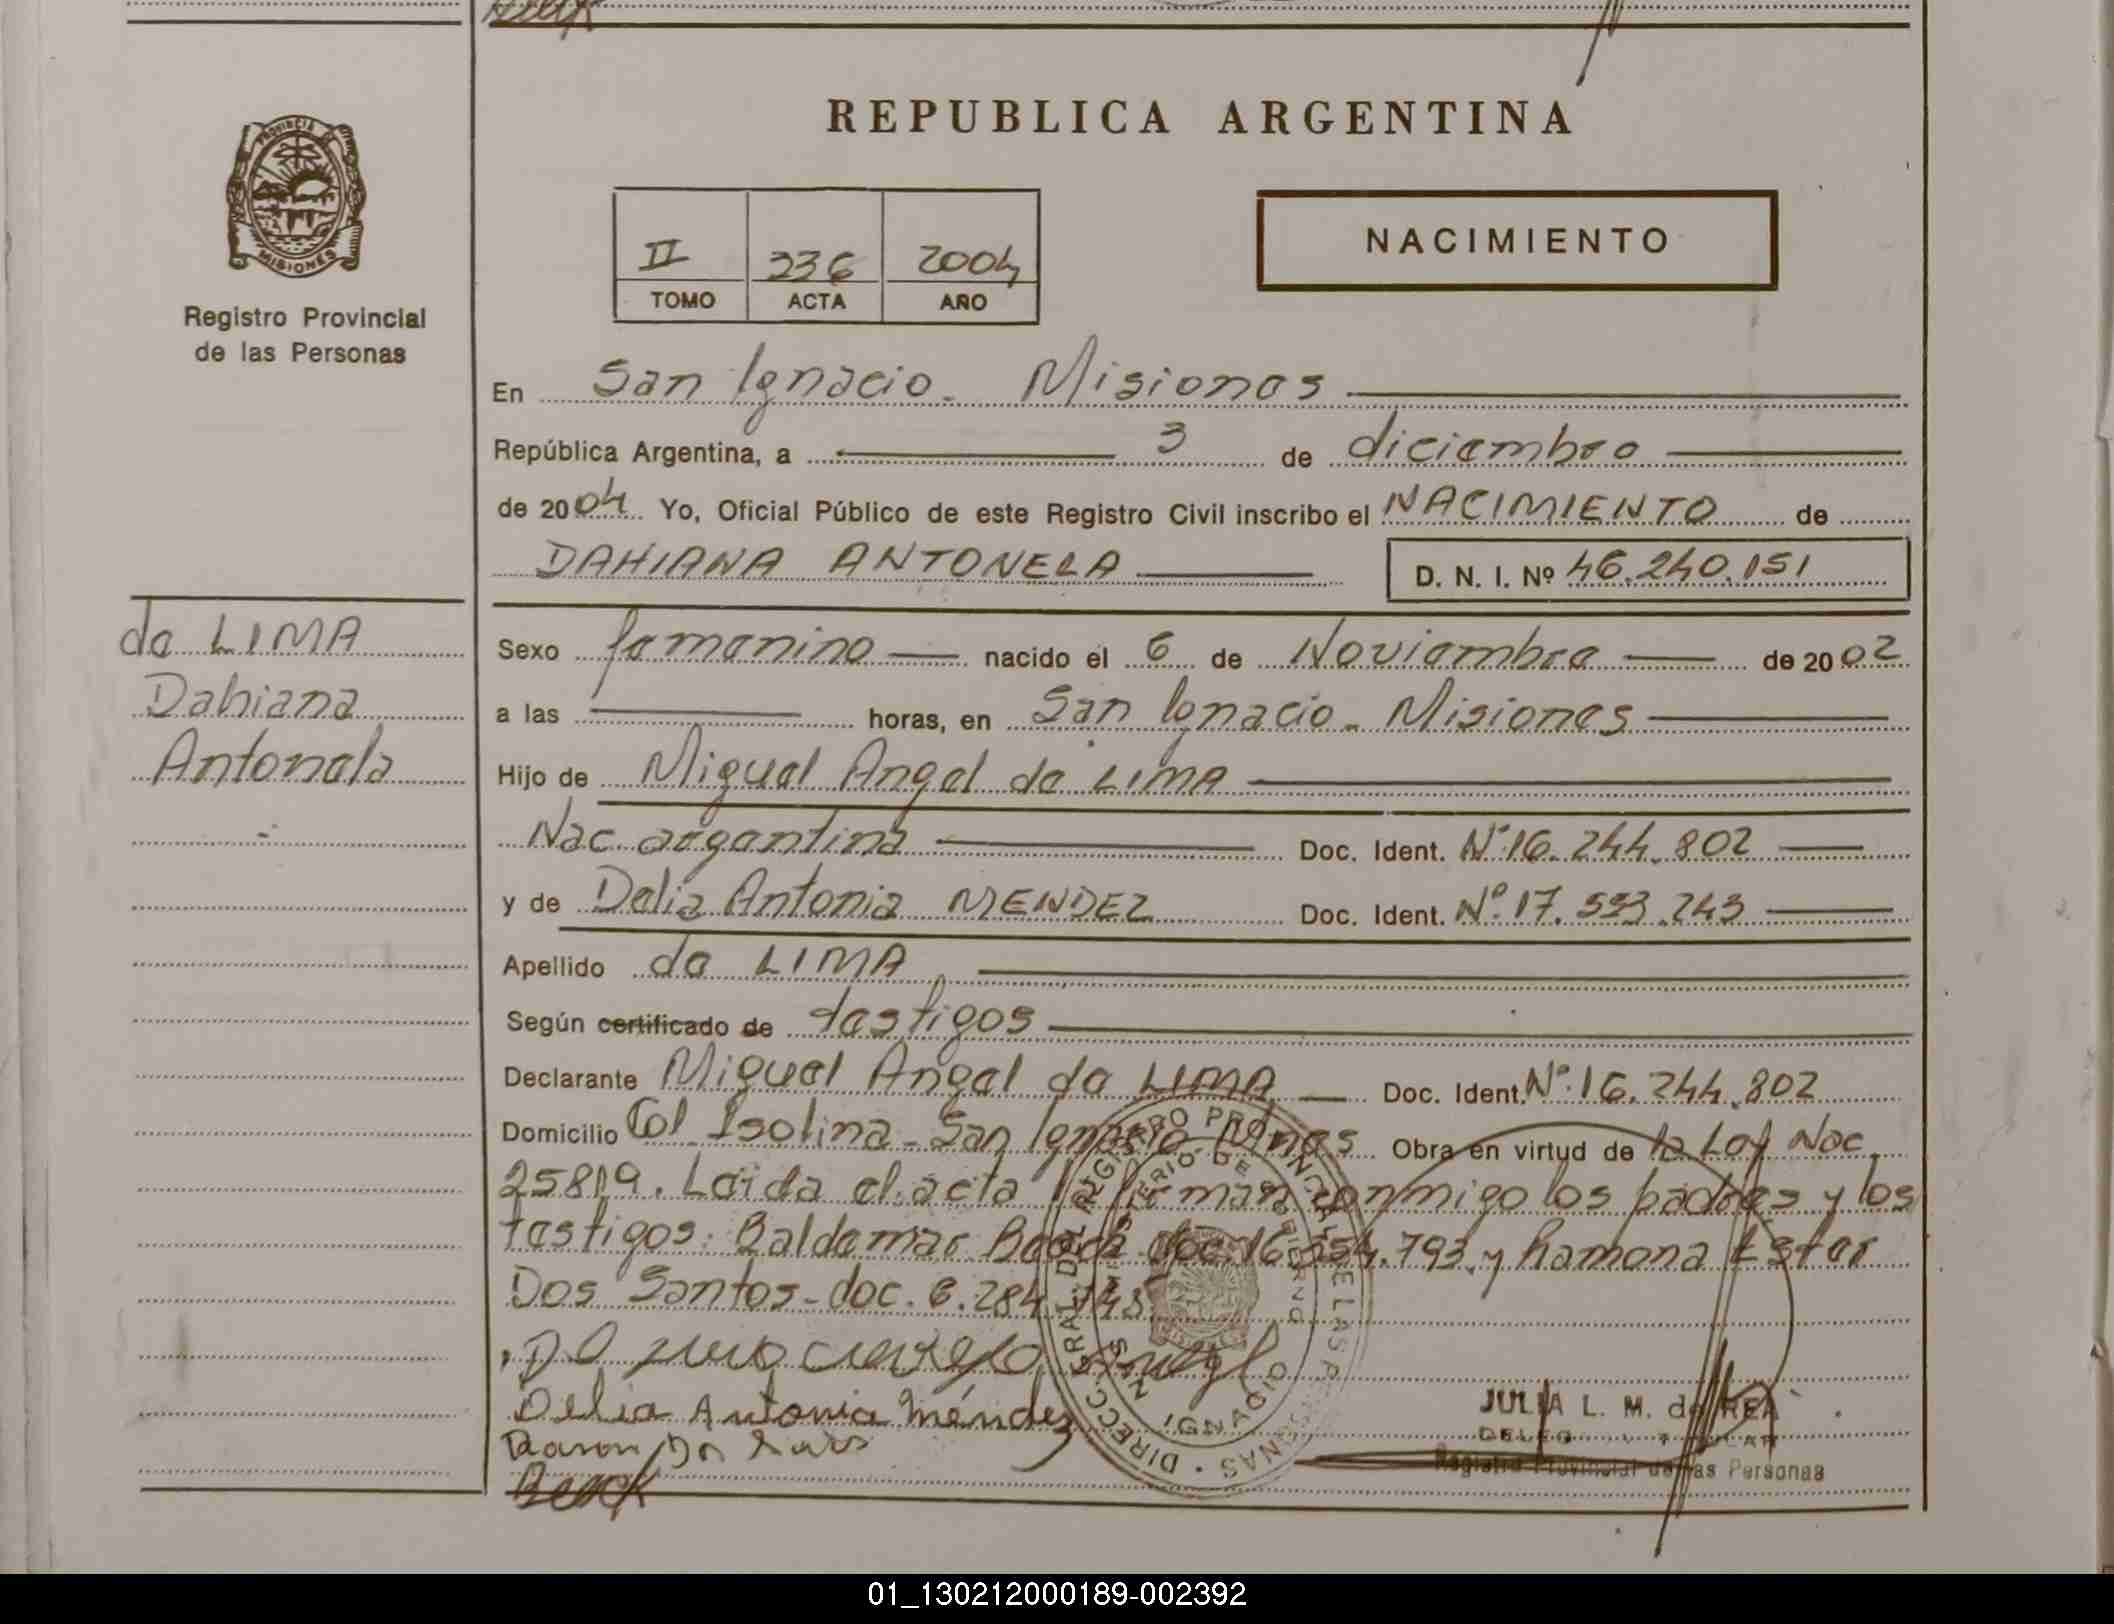 REPUBLICA ARGENTINA
PROVINCIA DE MISIONES
Registro Provincial
de las Personas
II 236 2004
TOMO ACTA AÑO
NACIMIENTO
En San Ignacio - Misiones
República Argentina, a 3 de diciembre
de 2004 Yo, Oficial Público de este Registro Civil inscribo el NACIMIENTO de
DAHIANA ANTONELA D. N. I. Nº 46.240.151
de LIMA
Dahiana
Antonela
Sexo femenino nacido el 6 de Noviembre de 2002
a las horas, en San Ignacio - Misiones
Hijo de Miguel Angel de LIMA
Nac. argentina Doc. Ident. Nº 16.244.802
y de Delia Antonia MENDEZ Doc. Ident. Nº 17.533.243
Apellido de LIMA
Según certificado de testigos
Declarante Miguel Angel de LIMA Doc. Ident. Nº 16.244.802
Domicilio Col. Isolina - San Ignacio - Mnes Obra en virtud de la Ley Nac.
25819. Leída el acta firman conmigo los padres y los
testigos: Baldemar doc. 16.254.793 y Ramona Ester
Dos Santos - doc. 6.284.
Delia Antonia Méndez
JULIA L. M. de REA
Registro Provincial de las Personas
01_130212000189-002392